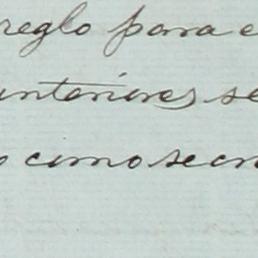 reglo para e
interiores se
o como secre